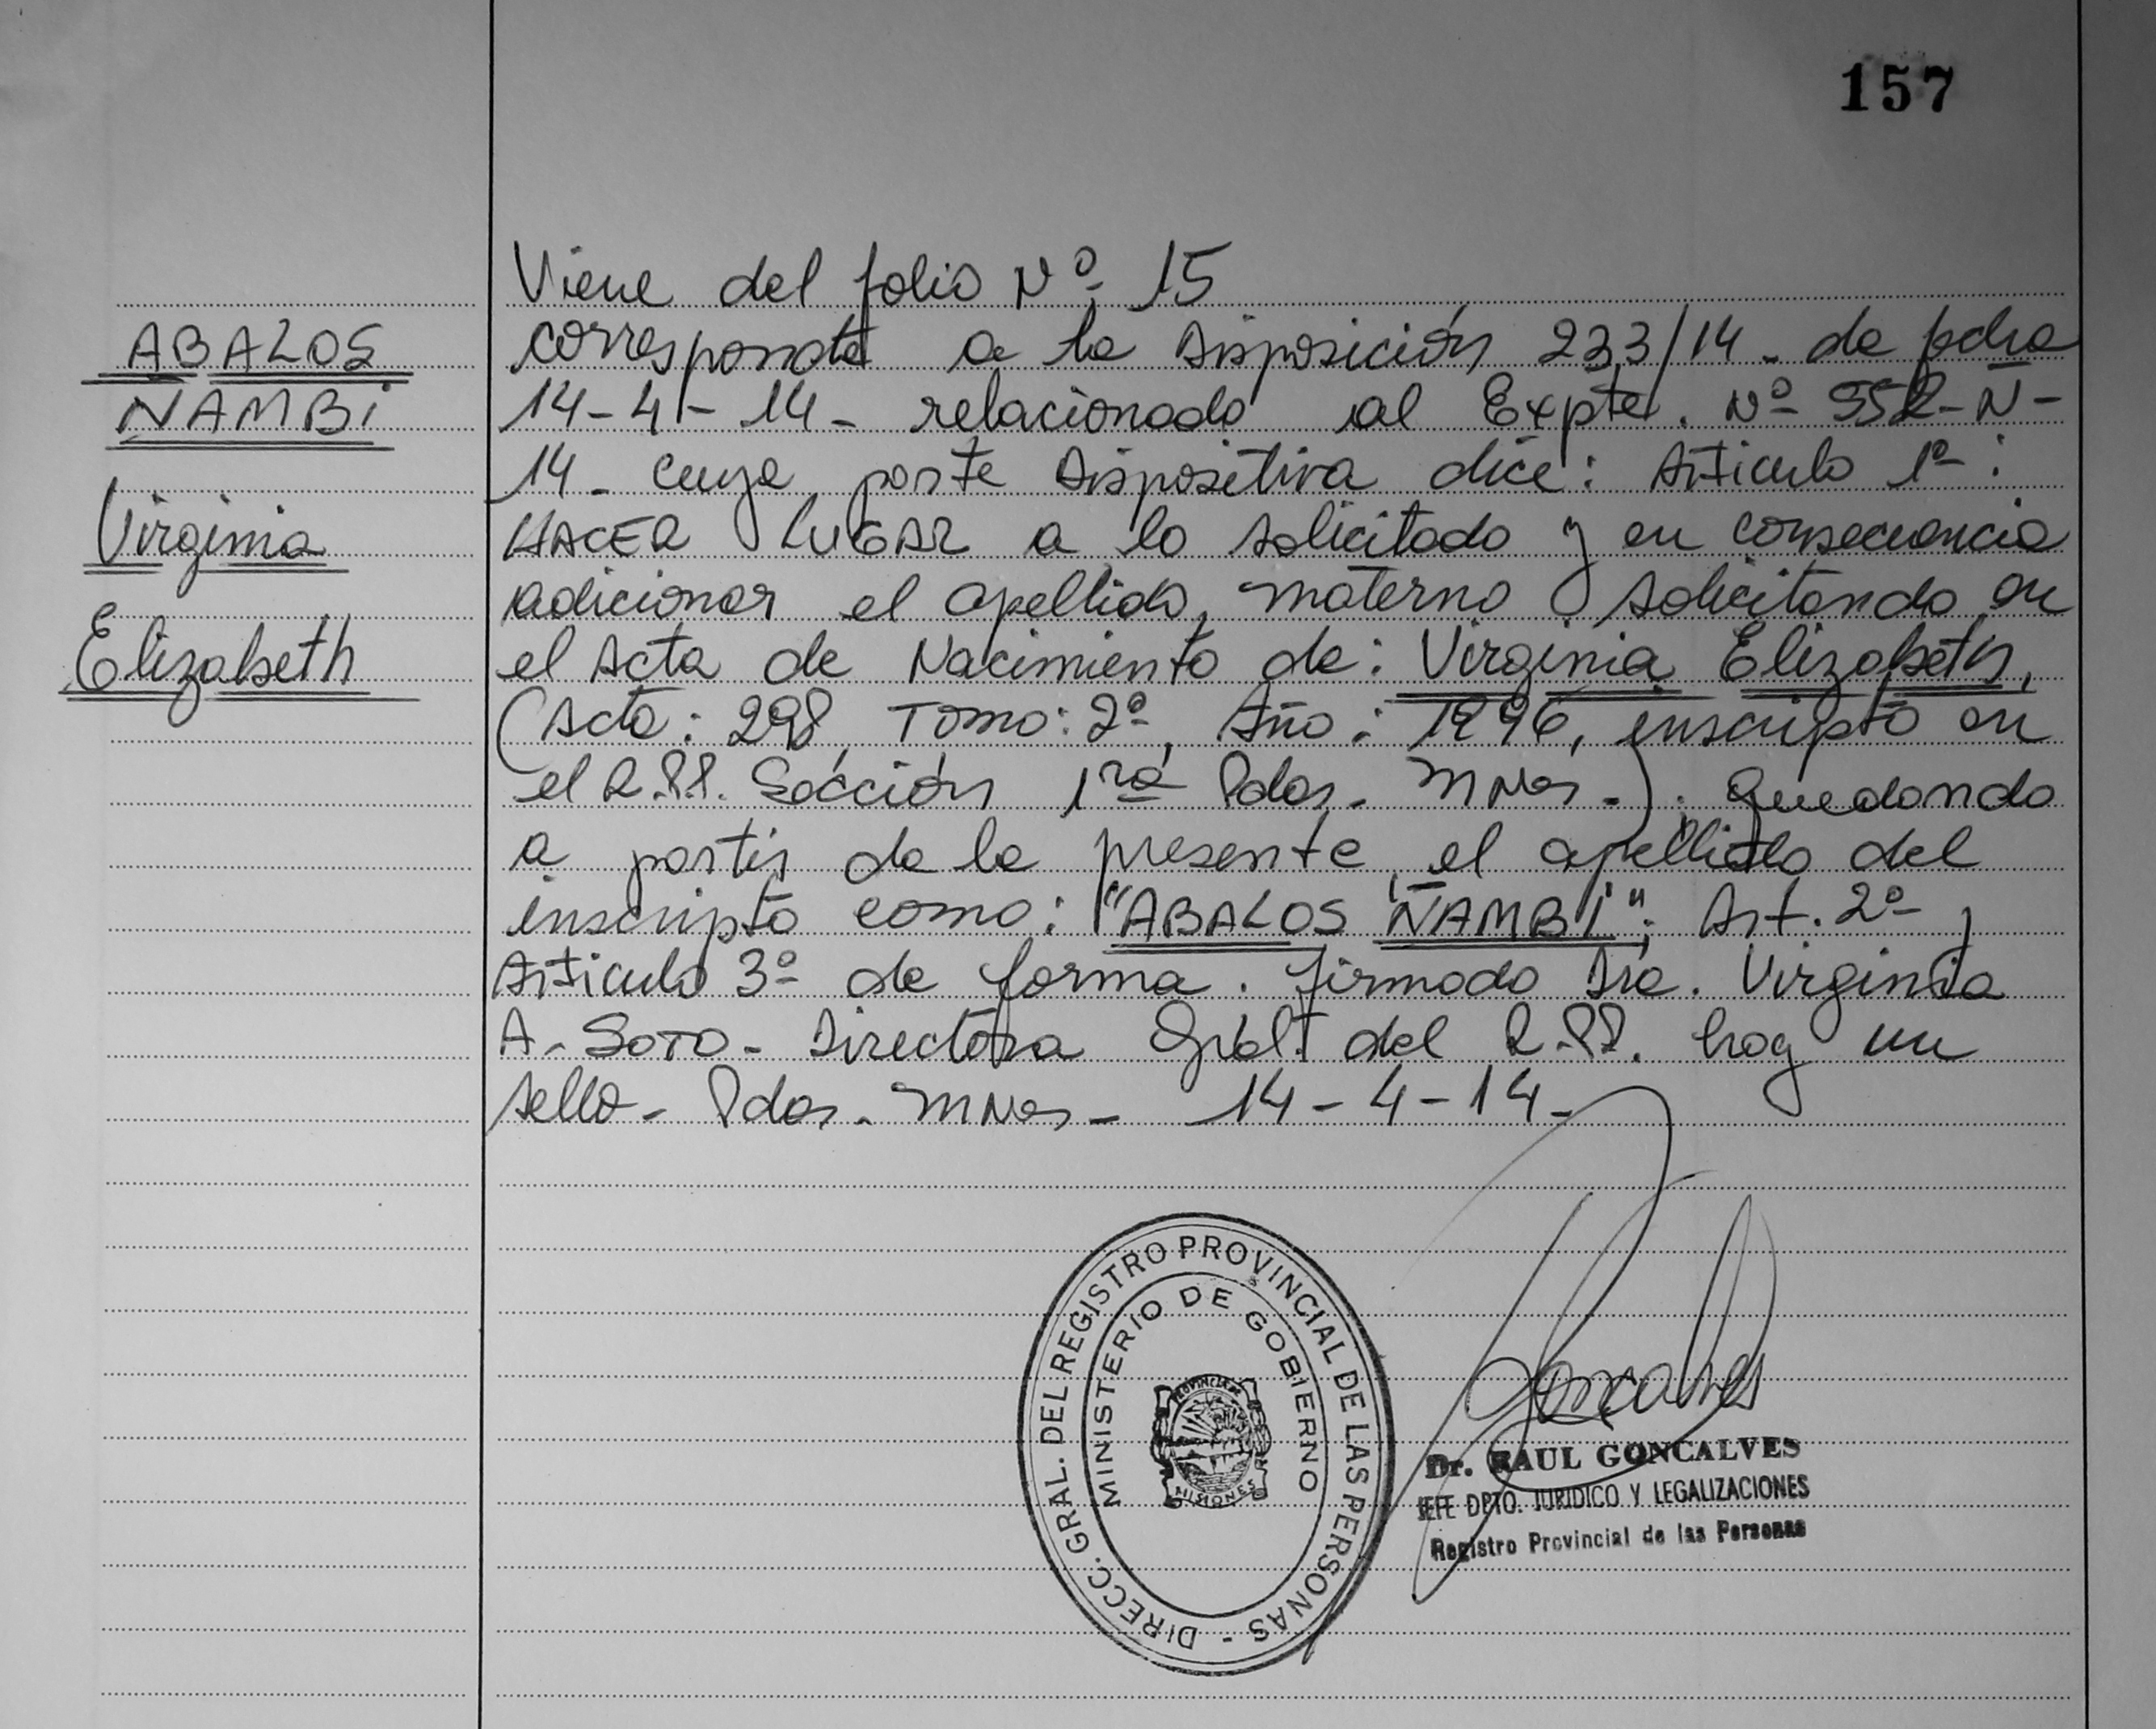 157
ABALOS
ÑAMBI
Virginia
Elizabeth
Viene del folio Nº 15
correspondte a la Disposición 233/14 - de fecha
14-4-14- relacionado al Expte. Nº 952-Ñ-
14- cuya parte Dispositiva dice: Artículo 1º:
HACER LUGAR a lo solicitado y en consecuencia
adicionar el apellido materno solicitando en
el Acta de Nacimiento de: Virginia Elizabeth,
(Acta: 298, Tomo: 2º, Año: 1996, inscripto en
el R.P.P. Sección 1ra Pdas. Mnes.). Quedando
a partir de la presente, el apellido del
inscripto como: "ABALOS ÑAMBI"; Art. 2º y
Artículo 3º de forma. Firmado Dra. Virginia
A. SOTO - Directora Gral. del R.P.P. hay un
sello - Pdas. Mnes - 14-4-14-
DIRECC. GRAL. DEL REGISTRO PROVINCIAL DE LAS PERSONAS -
MINISTERIO DE GOBIERNO
PROVINCIA DE
MISIONES
Goncalves
Dr. RAUL GONCALVES
JEFE DPTO. JURIDICO Y LEGALIZACIONES
Registro Provincial de las Personas